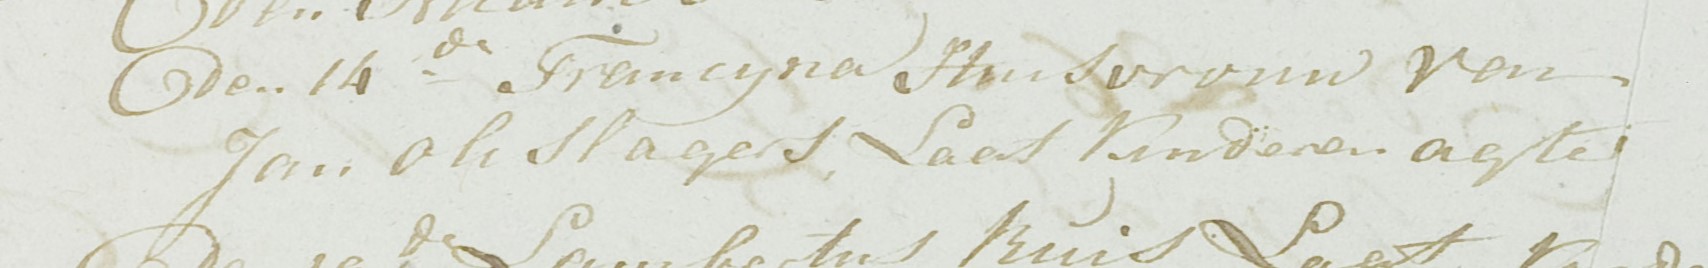 Den 14 de Francyna Huisvrouw Van
Jan oli slagers, Laat kinderen agter
Lambertus Kuis Laat